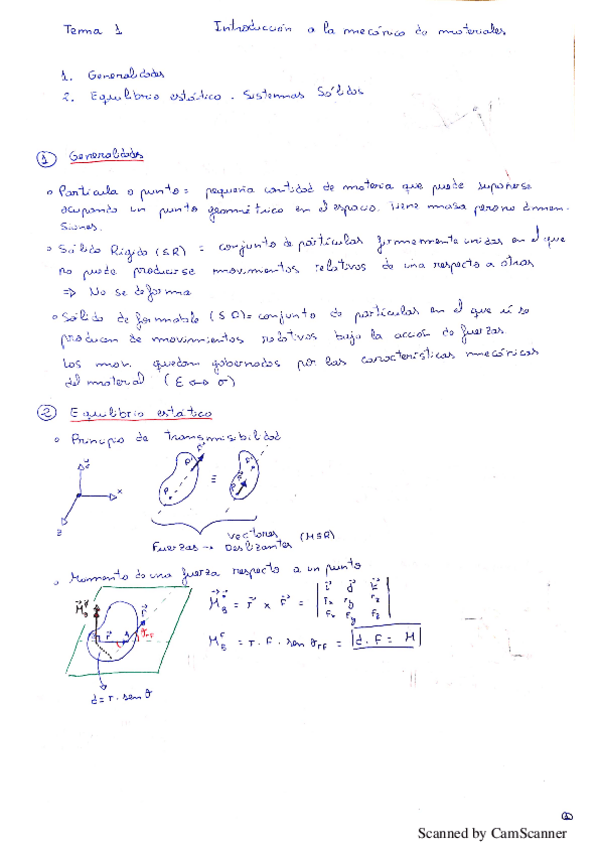 Tema 1 Introducción a la mecánica de materiales
1. Generalidades
2. Equilibrio estático. Sistemas Sólidos
1 Generalidades
Partícula o punto = pequeña cantidad de materia que puede suponerse
ocupando un punto geométrico en el espacio. Tiene masa pero no dimen-
siones.
Sólido Rígido (SR) = conjunto de partículas firmemente unidas en el que
no puede producirse movimientos relativos de una respecto a otras
⇒ No se deforma
Sólido deformable (SD) = conjunto de partículas en el que sí se
producen de movimientos relativos bajo la acción de fuerzas
Los mov. quedan gobernados por las características mecánicas
del material (ε ↔ σ)
2 Equilibrio estático
Principio de transmisibilidad
x
z
P
≡
Fuerzas → Vectores Deslizantes (MSR)
Momento de una fuerza respecto a un punto
M⃗ = r⃗ x F⃗ = | i⃗ j⃗ k⃗
rx ry rz
Fx Fy Fz |
M = r · F · sen θrF = d · F = M
d = r · sen θ
Scanned by CamScanner